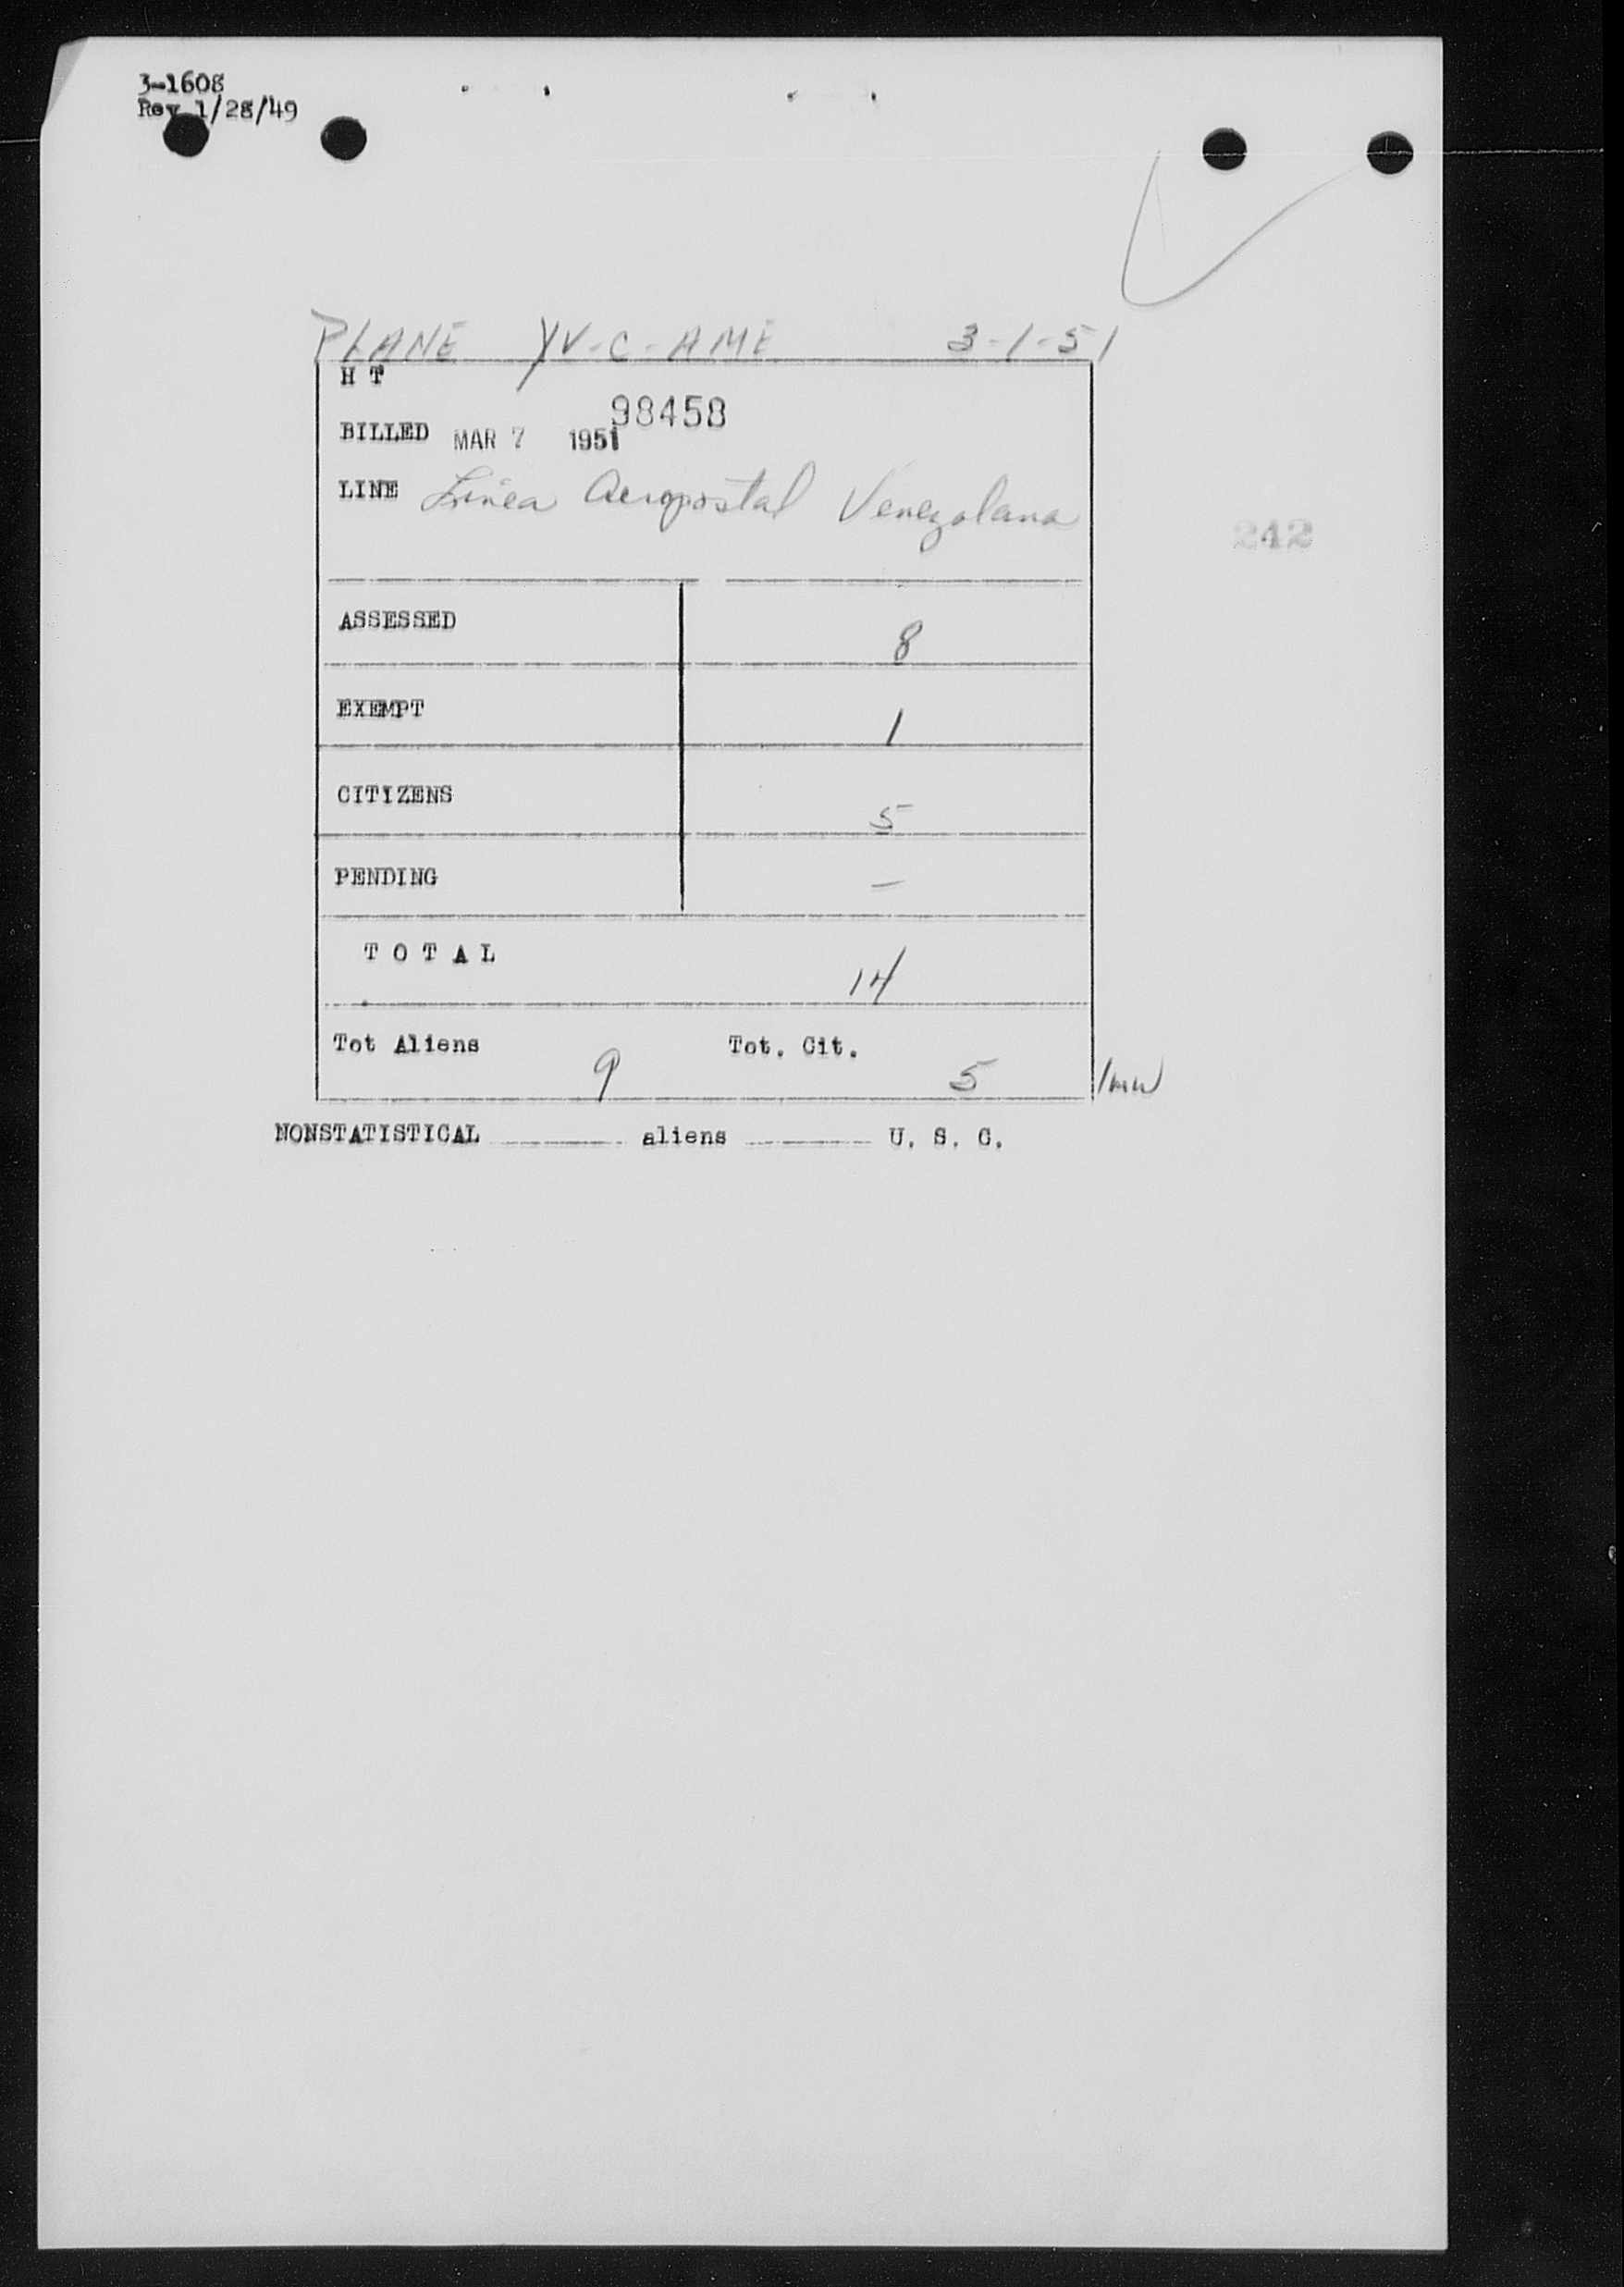 3-1608
Rev 1/28/49
PLANE YV-C-AME 3-1-51
H T
98458
BILLED MAR 7 1951
LINE Linea Aeropostal Venezolana
242
ASSESSED 8
EXEMPT 1
CITIZENS 5
PENDING —
T O T A L 14
Tot Aliens 9 Tot. Cit. 5
NONSTATISTICAL ______ aliens ______ U. S. C.